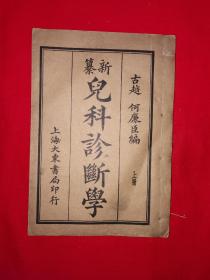 古越 何廉臣編 上冊
新纂
兒科診斷學
上海大東書局印行